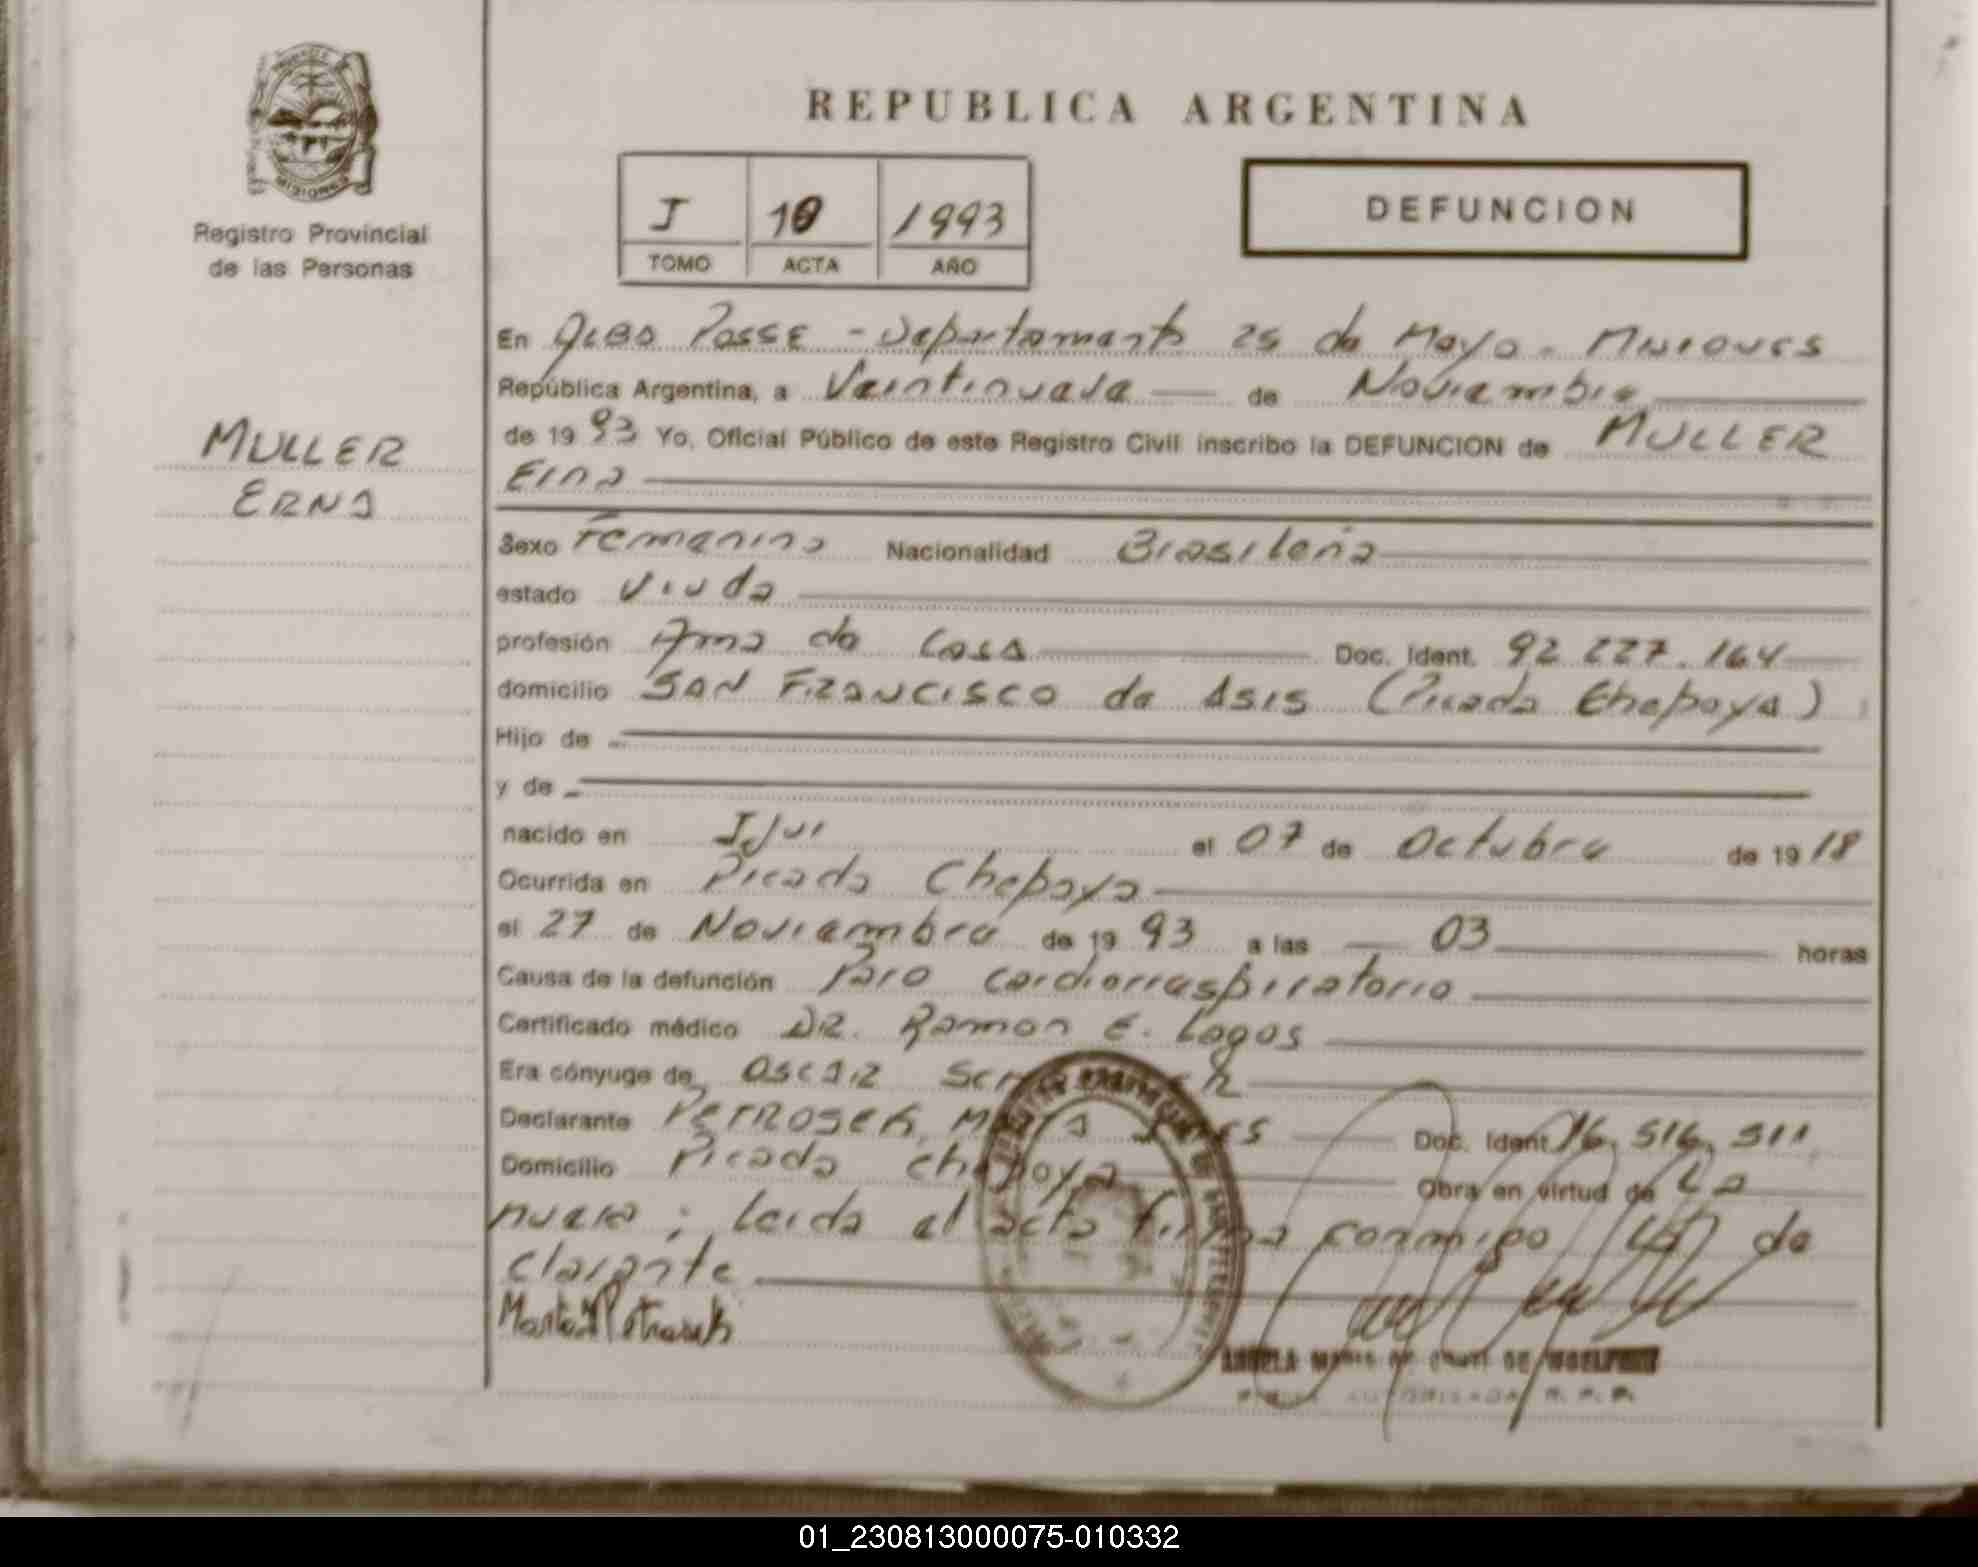 REPUBLICA ARGENTINA
MISIONES
Registro Provincial
de las Personas
J 10 1993
TOMO ACTA AÑO
DEFUNCION
MULLER
ERNA
En Alba Posse - Departamento 25 de Mayo - Misiones
República Argentina, a Veintinueve de Noviembre
de 1993 Yo, Oficial Público de este Registro Civil inscribo la DEFUNCION de MULLER
Erna
Sexo Femenino Nacionalidad Brasileña
estado Viuda
profesión Ama de Casa Doc. Ident. 92.227.164
domicilio SAN FRANCISCO de ASIS (Picada Chapaya)
Hijo de
y de
nacido en Ijui el 07 de Octubre de 1918
Ocurrida en Picada Chapaya
el 27 de Noviembre de 1993 a las 03 horas
Causa de la defunción Paro cardiorrespiratorio
Certificado médico DR. Ramon E. Lagos
Era cónyuge de OSCAR
Declarante Doc. Ident. 16.516.511
Domicilio Picada Chapaya Obra en virtud de La
nuera; leida el acta firma conmigo la de
clarante
01_230813000075-010332